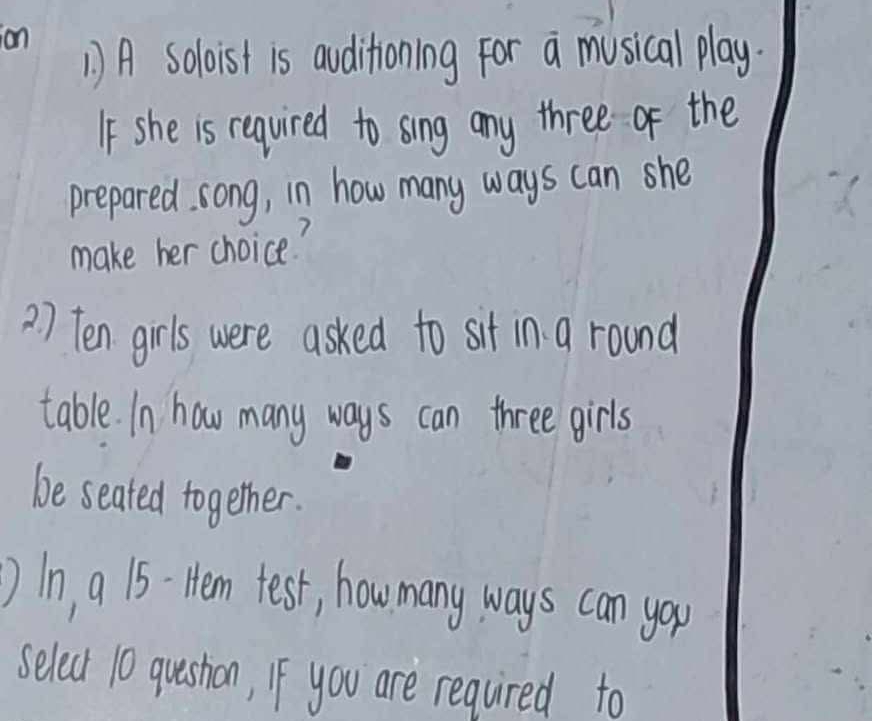 ion
1.) A soloist is auditioning for a musical play.
If she is required to sing any three of the
prepared song, in how many ways can she
make her choice?
2.) Ten girls were asked to sit in a round
table. In how many ways can three girls
be seated together.
) In, a 15-item test, how many ways can you
select 10 question, if you are required to